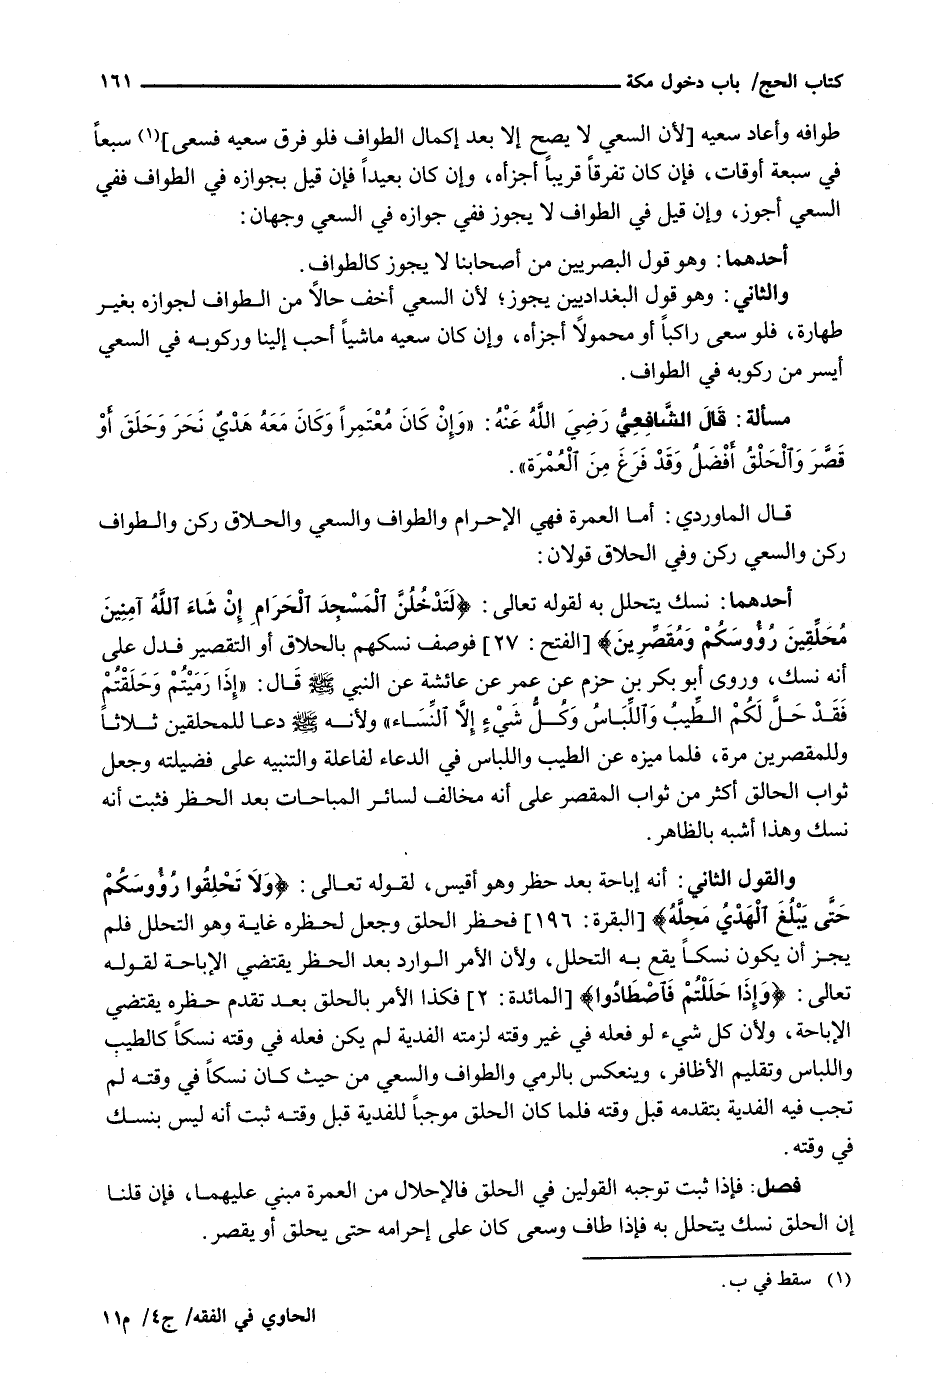 كتاب الحج/ باب دخول مكة ١٦١
طوافه وأعاد سعيه [لأن السعي لا يصح إلا بعد إكمال الطواف فلو فرق سعيه فسعى](١) سبعاً
في سبعة أوقات، فإن كان تفرقاً قريباً أجزأه، وإن كان بعيداً فإن قيل بجوازه في الطواف ففي
السعي أجوز، وإن قيل في الطواف لا يجوز ففي جوازه في السعي وجهان:
أحدهما: وهو قول البصريين من أصحابنا لا يجوز كالطواف.
والثاني: وهو قول البغداديين يجوز؛ لأن السعي أخف حالاً من الطواف لجوازه بغير
طهارة، فلو سعى راكباً أو محمولاً أجزأه، وإن كان سعيه ماشياً أحب إلينا وركوبه في السعي
أيسر من ركوبه في الطواف.
مسألة: قَالَ الشَّافِعِيُّ رَضِيَ اللَّهُ عَنْهُ: «وَإِنْ كَانَ مُعْتَمِراً وَكَانَ مَعَهُ هَدْيٌ نَحَرَ وَحَلَقَ أَوْ
قَصَّرَ وَٱلْحَلْقُ أَفْضَلُ وَقَدْ فَرَغَ مِنَ ٱلْعُمْرَةِ».
قال الماوردي: أما العمرة فهي الإحرام والطواف والسعي والحلاق ركن والطواف
ركن والسعي ركن وفي الحلاق قولان:
أحدهما: نسك يتحلل به لقوله تعالى: ﴿لَتَدْخُلُنَّ ٱلْمَسْجِدَ ٱلْحَرَامِ إِنْ شَاءَ ٱللَّهُ آمِنِينَ
مُحَلِّقِينَ رُؤُوسَكُمْ وَمُقَصِّرِينَ﴾ [الفتح: ٢٧] فوصف نسكهم بالحلاق أو التقصير فدل على
أنه نسك، وروى أبو بكر بن حزم عن عمر عن عائشة عن النبي ﷺ قَال: «إِذَا رَمَيْتُمْ وَحَلَقْتُمْ
فَقَدْ حَلَّ لَكُمْ الطِّيبُ وَٱللِّبَاسُ وَكُلُّ شَيْءٍ إِلَّا ٱلنِّسَاء» ولأنه ﷺ دعا للمحلقين ثلاثاً
وللمقصرين مرة، فلما ميزه عن الطيب واللباس في الدعاء لفاعلة والتنبيه على فضيلته وجعل
ثواب الحالق أكثر من ثواب المقصر على أنه مخالف لسائر المباحات بعد الحظر فثبت أنه
نسك وهذا أشبه بالظاهر.
والقول الثاني: أنه إباحة بعد حظر وهو أقيس، لقوله تعالى: ﴿وَلَا تَحْلِقُوا رُؤُوسَكُمْ
حَتَّى يَبْلُغَ ٱلْهَدْيُ مَحِلَّهُ﴾ [البقرة: ١٩٦] فحظر الحلق وجعل لحظره غاية وهو التحلل فلم
يجز أن يكون نسكاً يقع به التحلل، ولأن الأمر الوارد بعد الحظر يقتضي الإباحة لقوله
تعالى: ﴿وَإِذَا حَلَلْتُمْ فَٱصْطَادُوا﴾ [المائدة: ٢] فكذا الأمر بالحلق بعد تقدم حظره يقتضي
الإباحة، ولأن كل شيء لو فعله في غير وقته لزمته الفدية لم يكن فعله في وقته نسكاً كالطيب
واللباس وتقليم الأظافر، وينعكس بالرمي والطواف والسعي من حيث كان نسكاً في وقته لم
تجب فيه الفدية بتقدمه قبل وقته فلما كان الحلق موجباً للفدية قبل وقته ثبت أنه ليس بنسك
في وقته.
فصل: فإذا ثبت توجبه القولين في الحلق فالإحلال من العمرة مبني عليهما، فإن قلنا
إن الحلق نسك يتحلل به فإذا طاف وسعى كان على إحرامه حتى يحلق أو يقصر.
(١) سقط في ب.
الحاوي في الفقه/ ج٤/ م١١